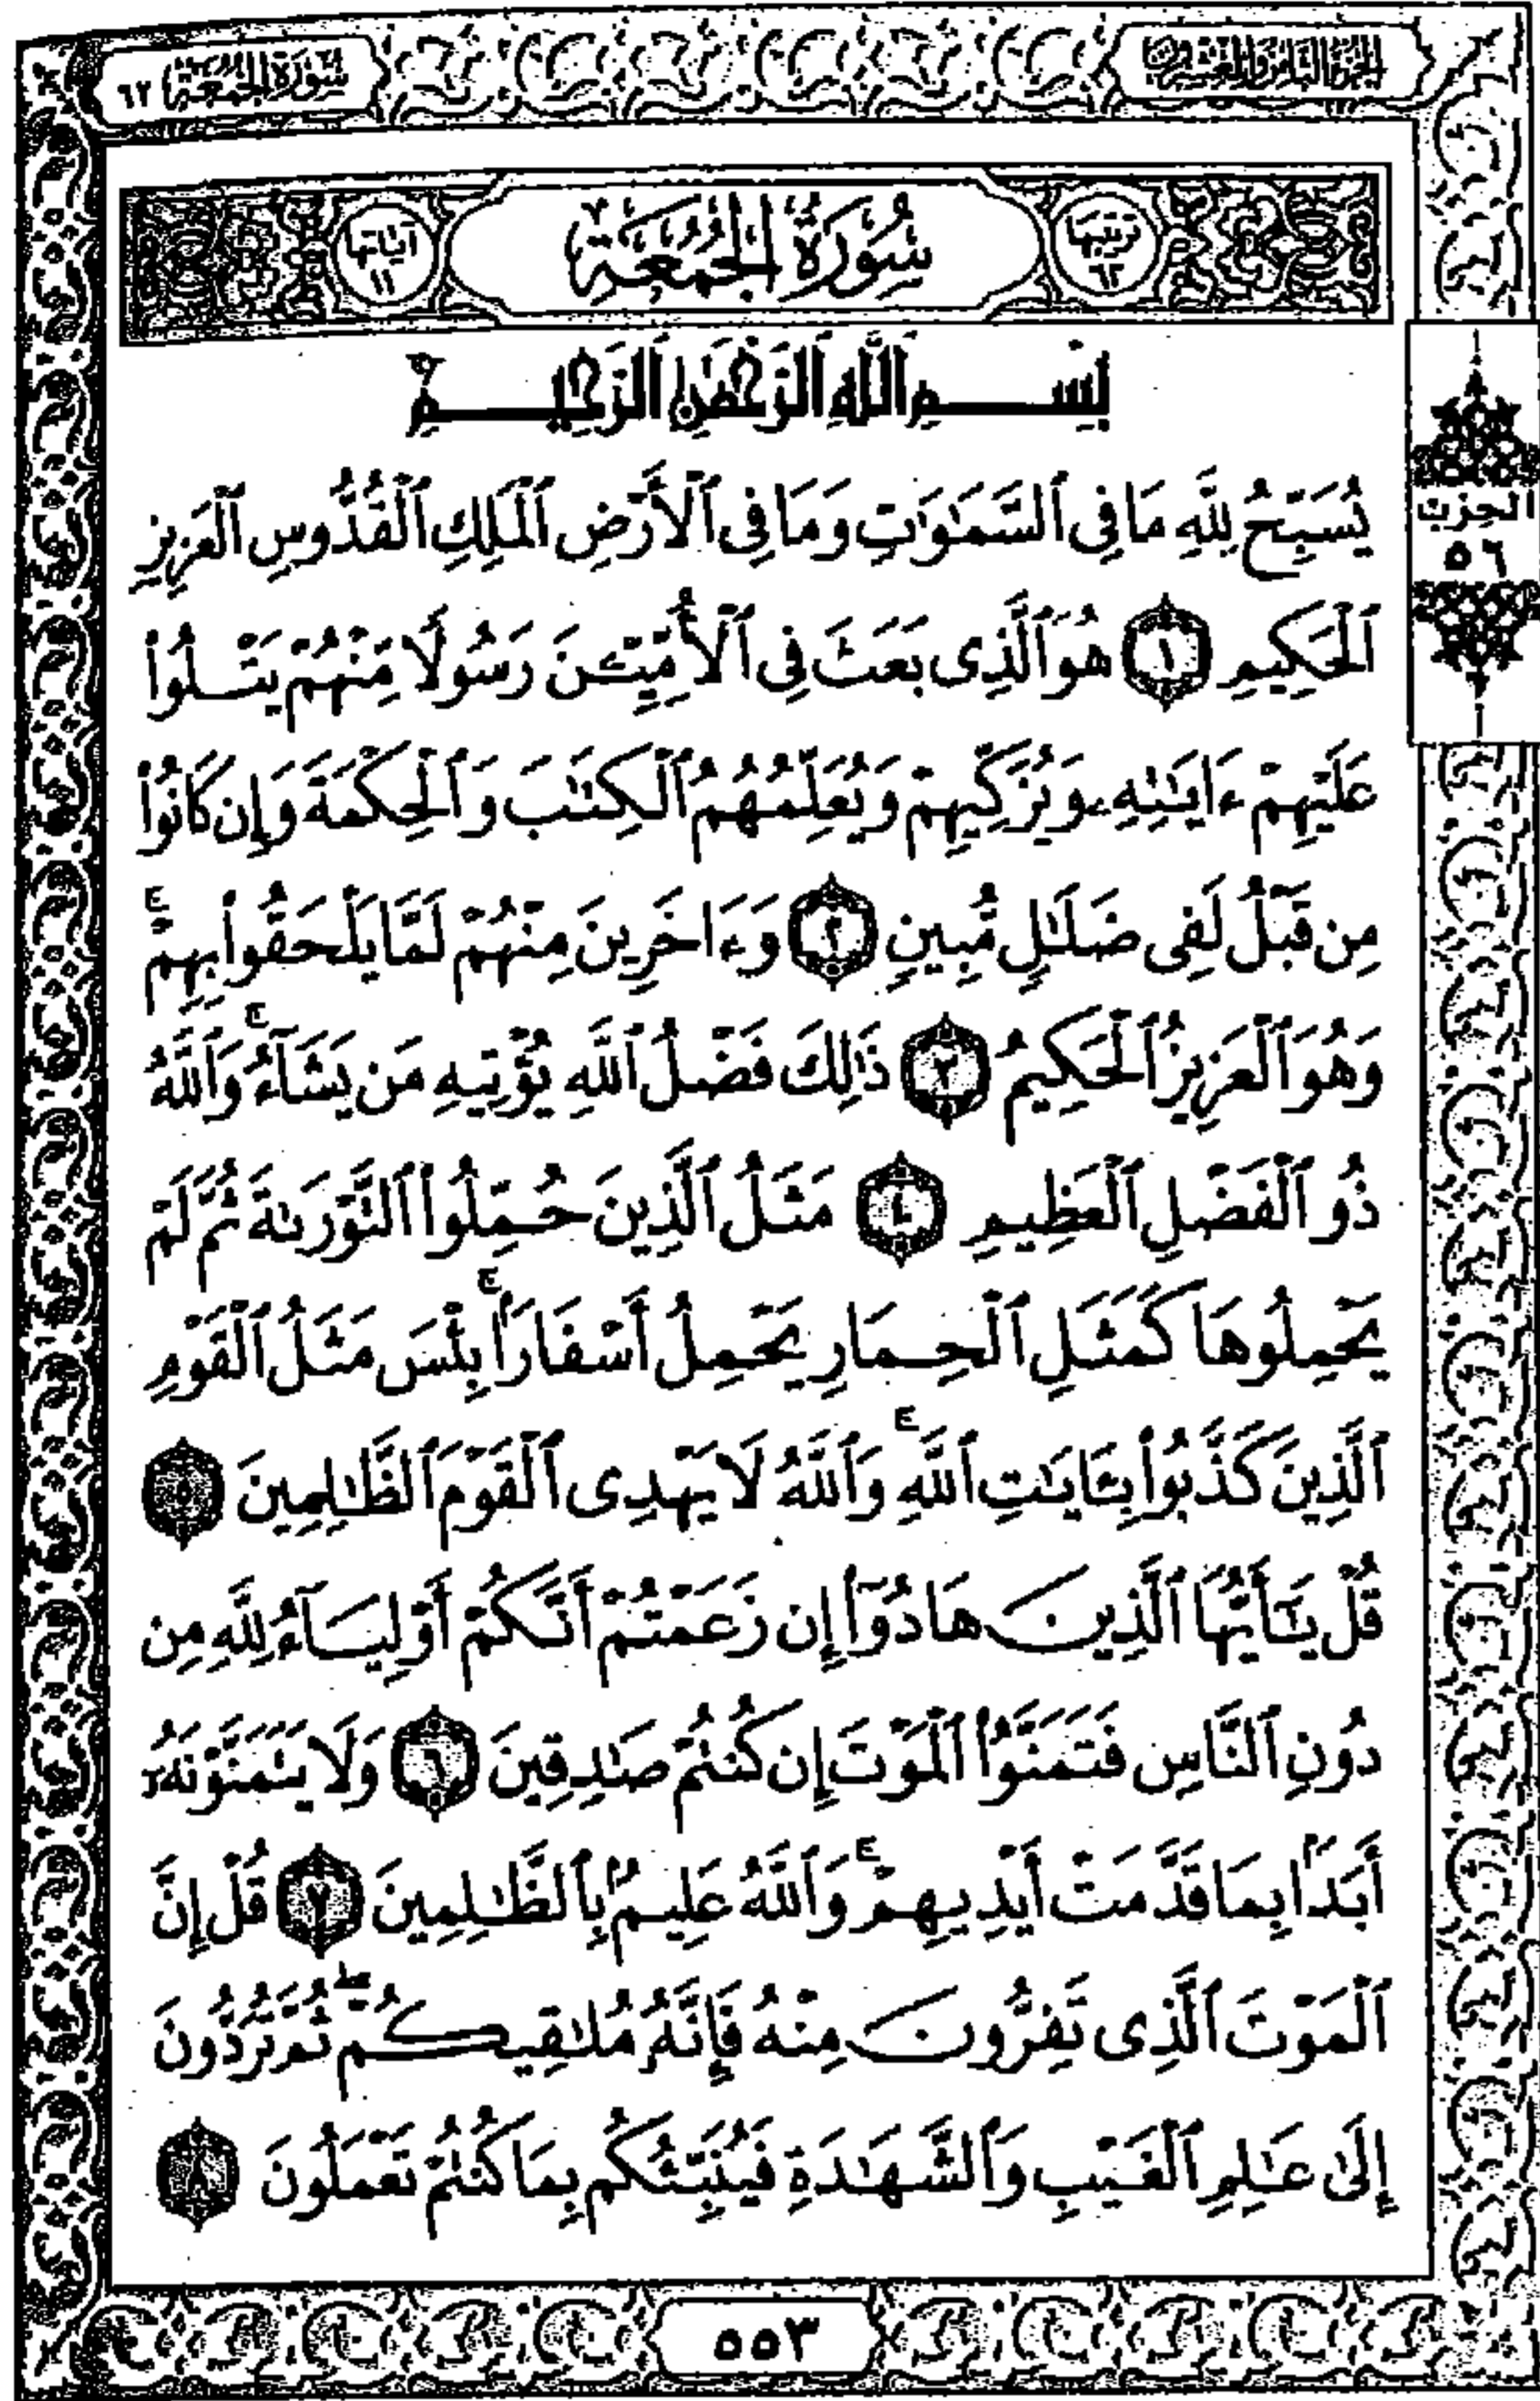 الجزء الثامن والعشرون
سورة الجمعة ٦٢
ترتيبها ٦٢
سُورَةُ الجُمُعَةِ
آياتها ١١
بِسْمِ ٱللَّهِ ٱلرَّحْمَٰنِ ٱلرَّحِيمِ
الحزب ٥٦
يُسَبِّحُ لِلَّهِ مَا فِى ٱلسَّمَٰوَٰتِ وَمَا فِى ٱلْأَرْضِ ٱلْمَلِكِ ٱلْقُدُّوسِ ٱلْعَزِيزِ
ٱلْحَكِيمِ ١ هُوَ ٱلَّذِى بَعَثَ فِى ٱلْأُمِّيِّـۧنَ رَسُولًا مِّنْهُمْ يَتْلُوا۟
عَلَيْهِمْ ءَايَٰتِهِۦ وَيُزَكِّيهِمْ وَيُعَلِّمُهُمُ ٱلْكِتَٰبَ وَٱلْحِكْمَةَ وَإِن كَانُوا۟
مِن قَبْلُ لَفِى ضَلَٰلٍ مُّبِينٍ ٢ وَءَاخَرِينَ مِنْهُمْ لَمَّا يَلْحَقُوا۟ بِهِمْ ۚ
وَهُوَ ٱلْعَزِيزُ ٱلْحَكِيمُ ٣ ذَٰلِكَ فَضْلُ ٱللَّهِ يُؤْتِيهِ مَن يَشَآءُ ۚ وَٱللَّهُ
ذُو ٱلْفَضْلِ ٱلْعَظِيمِ ٤ مَثَلُ ٱلَّذِينَ حُمِّلُوا۟ ٱلتَّوْرَىٰةَ ثُمَّ لَمْ
يَحْمِلُوهَا كَمَثَلِ ٱلْحِمَارِ يَحْمِلُ أَسْفَارًۢا ۚ بِئْسَ مَثَلُ ٱلْقَوْمِ
ٱلَّذِينَ كَذَّبُوا۟ بِـَٔايَٰتِ ٱللَّهِ ۚ وَٱللَّهُ لَا يَهْدِى ٱلْقَوْمَ ٱلظَّٰلِمِينَ ٥
قُلْ يَٰٓأَيُّهَا ٱلَّذِينَ هَادُوٓا۟ إِن زَعَمْتُمْ أَنَّكُمْ أَوْلِيَآءُ لِلَّهِ مِن
دُونِ ٱلنَّاسِ فَتَمَنَّوُا۟ ٱلْمَوْتَ إِن كُنتُمْ صَٰدِقِينَ ٦ وَلَا يَتَمَنَّوْنَهُۥٓ
أَبَدًۢا بِمَا قَدَّمَتْ أَيْدِيهِمْ ۚ وَٱللَّهُ عَلِيمٌۢ بِٱلظَّٰلِمِينَ ٧ قُلْ إِنَّ
ٱلْمَوْتَ ٱلَّذِى تَفِرُّونَ مِنْهُ فَإِنَّهُۥ مُلَٰقِيكُمْ ۖ ثُمَّ تُرَدُّونَ
إِلَىٰ عَٰلِمِ ٱلْغَيْبِ وَٱلشَّهَٰدَةِ فَيُنَبِّئُكُم بِمَا كُنتُمْ تَعْمَلُونَ ٨
٥٥٣